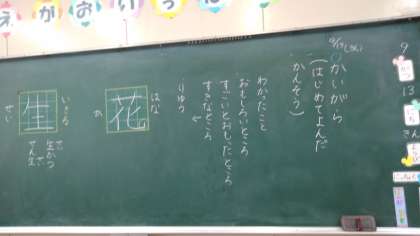 えがおいっぱ
かいがら
(はじめてよんだ
かんそう)
わかったこと
おもしろいところ
すごいとおもったところ
すきなところ
りゆう
花
はな
か
生
いきる
せい
生かつ
せん生
9
13